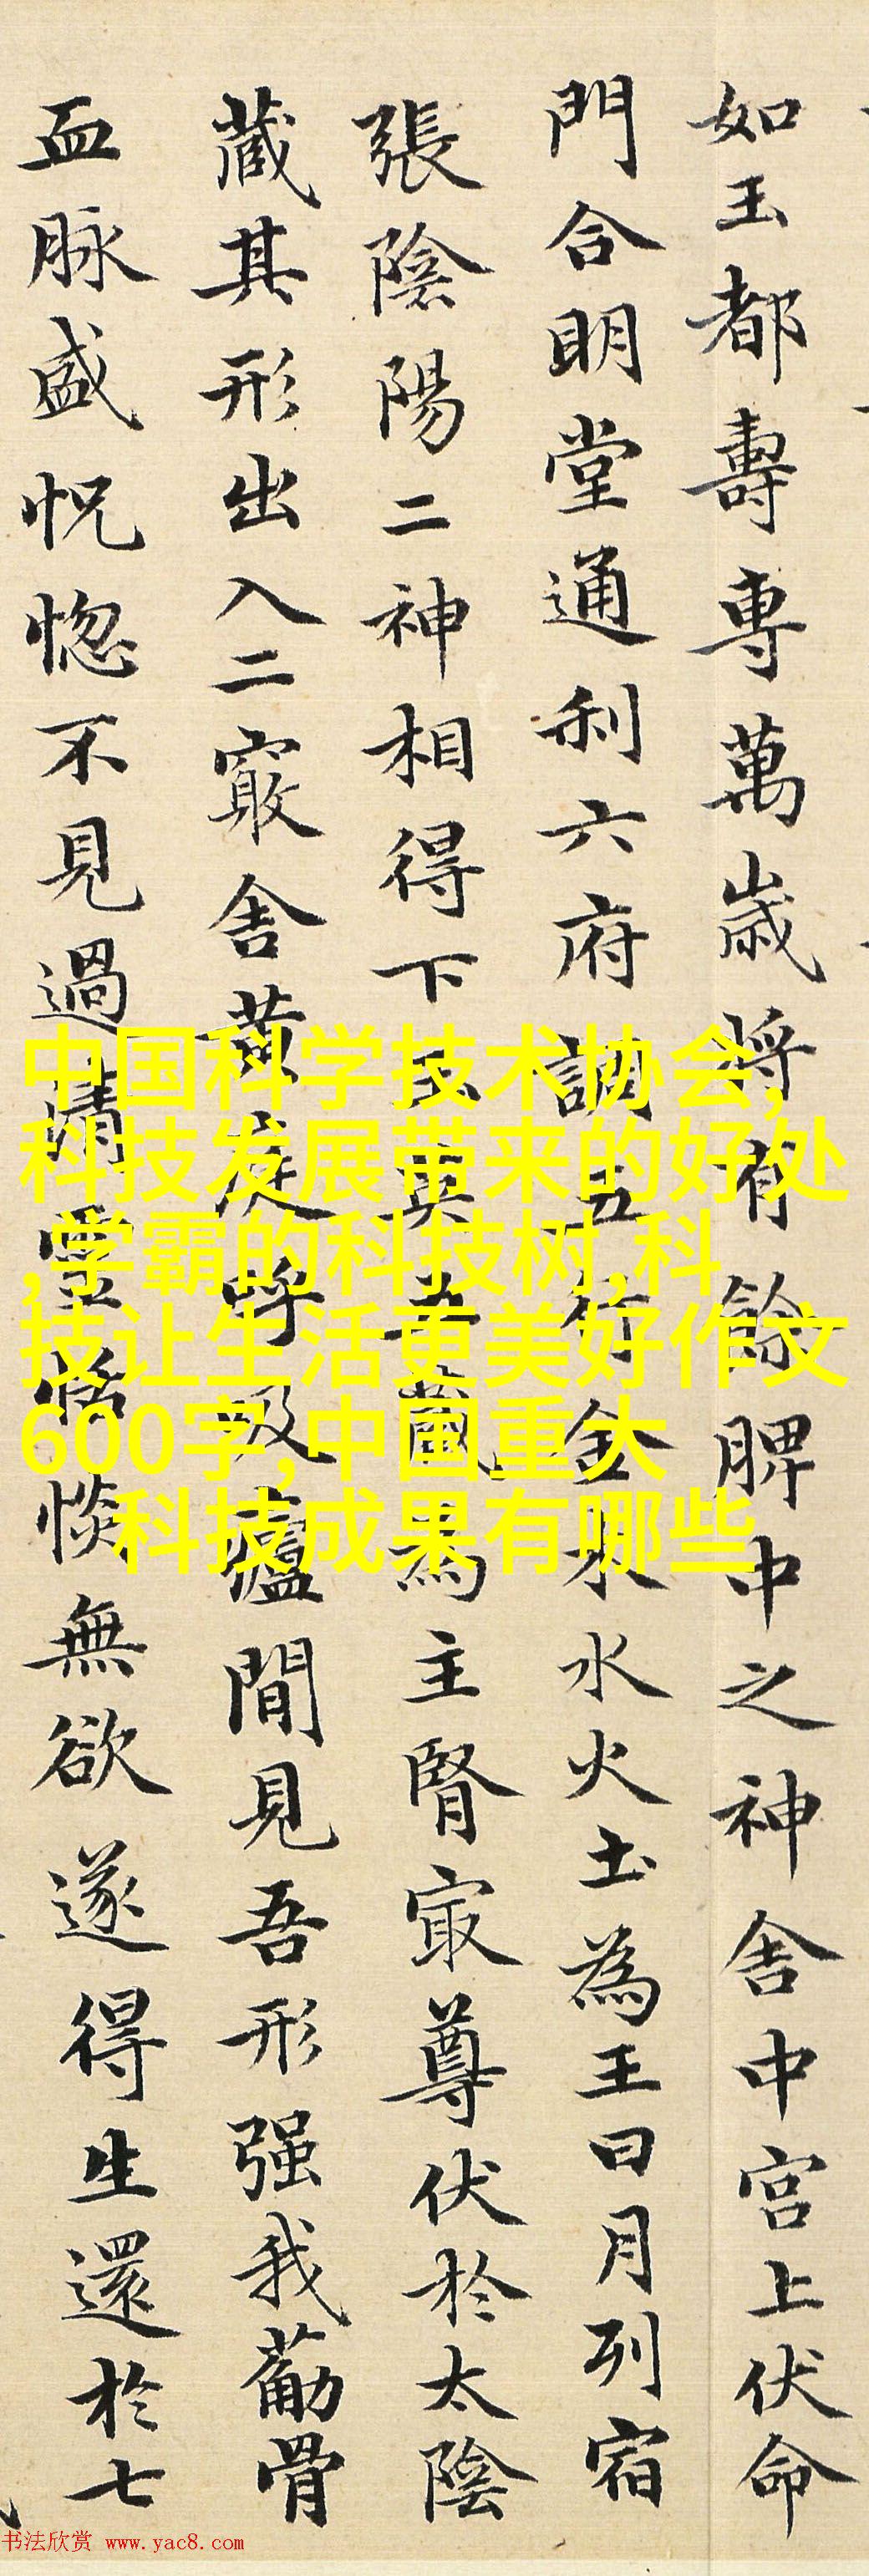 如玉都壽專萬歲將有餘脾中之神舍中宮上伏命
門合明堂通利六府調五行金木水火土為王日月列宿
張陰陽二神相得下玉英五藏為主腎冣尊伏於太陰
藏其形出入二竅舍黃庭呼吸廬間見吾形强我筋骨
血脉盛怳惚不見過清靈恬惔無欲遂得生還於七
中国科学技术协会,
科技发展带来的好处
,学霸的科技树,科
技让生活更美好作文
600字,中国重大
科技成果有哪些
书法欣赏 www.yac8.com